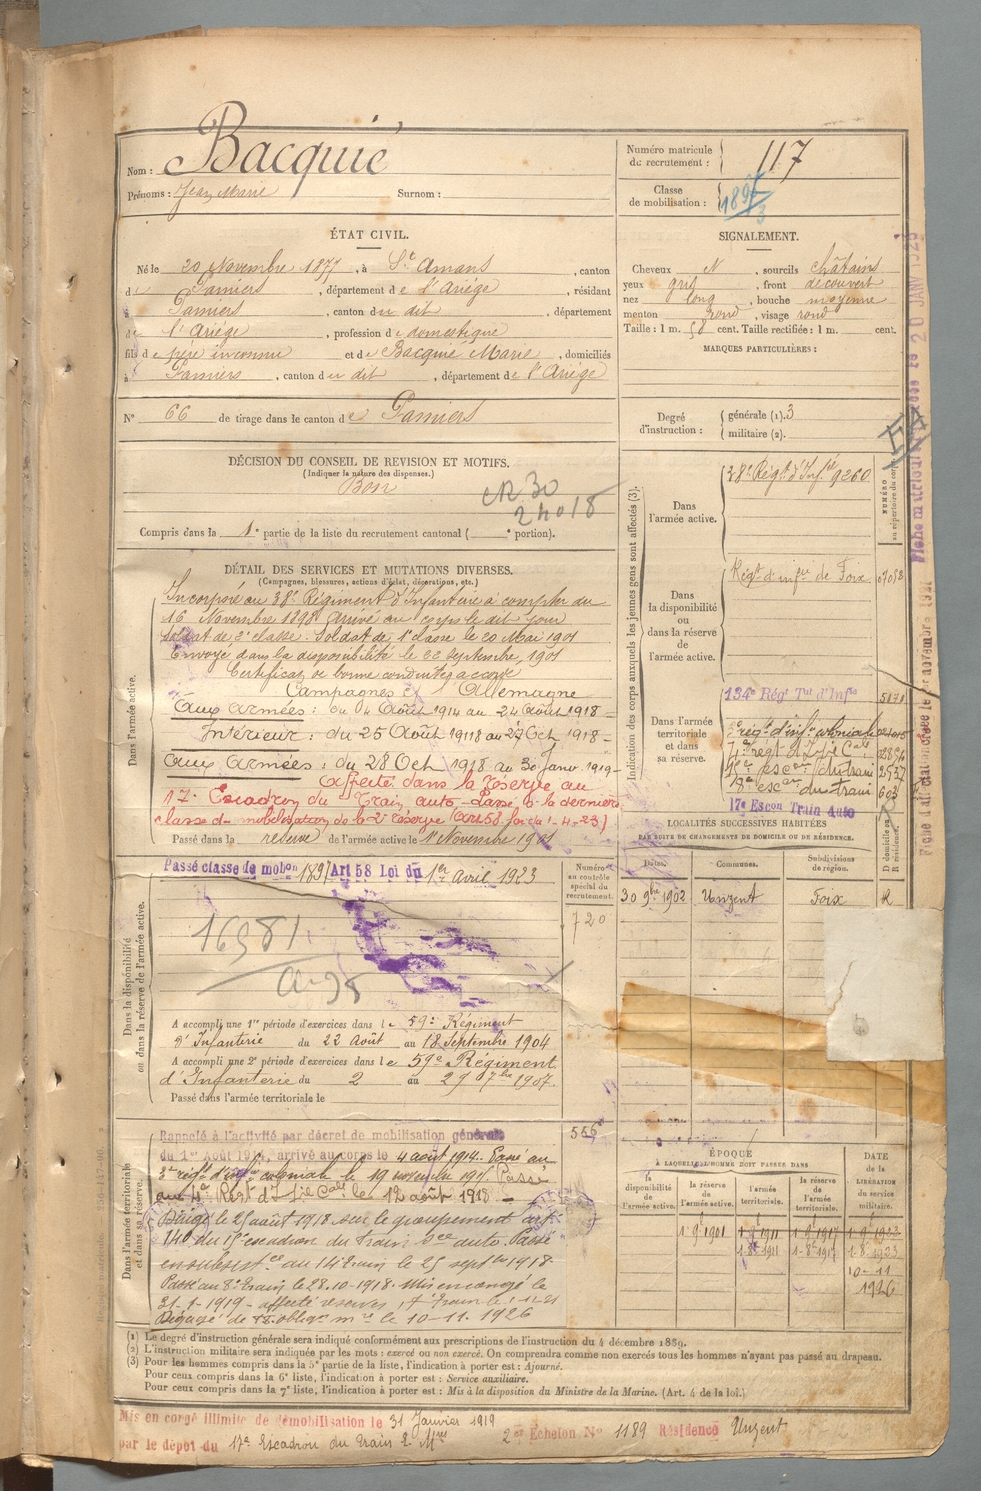 Nom : Bacquié
Prénoms : Jean Marie Surnom :
Numéro matricule du recrutement : 117
Classe de mobilisation : 189
ÉTAT CIVIL.
Né le 20 Novembre 1877, à St Amans, canton
de Pamiers, département de l'Ariége, résidant
à Pamiers, canton du dit, département
de l'Ariége, profession de domestique
fils de père inconnu et de Bacquié Marie, domiciliés
à Pamiers, canton du dit, département de l'Ariége
SIGNALEMENT.
Cheveux N, sourcils châtains
yeux gris, front découvert
nez long, bouche moyenne
menton rond, visage rond
Taille : 1 m. 58 cent. Taille rectifiée : 1 m. cent.
MARQUES PARTICULIÈRES :
N° 66 de tirage dans le canton de Pamiers
Degré d'instruction : générale (1). 3
militaire (2).
DÉCISION DU CONSEIL DE REVISION ET MOTIFS.
(Indiquer la nature des dispenses.)
Bon
Compris dans la 1e partie de la liste du recrutement cantonal ( e portion).
DÉTAIL DES SERVICES ET MUTATIONS DIVERSES.
(Campagnes, blessures, actions d'éclat, décorations, etc.)
Dans l'armée active.
Incorporé au 38e Régiment d'Infanterie à compter du
16 Novembre 1898 arrivé au corps le dit jour
soldat de 2e classe. Soldat de 1e classe le 20 Mai 1901
Envoyé dans la disponibilité le 22 septembre 1901
Certificat de bonne conduite accordé
Campagnes Allemagne
Aux armées : du 4 Août 1914 au 24 Août 1918
Intérieur : du 25 Août 1918 au 27 Oct 1918
Aux armées : du 28 Oct 1918 au 30 Janv. 1919
Affecté dans la réserve au
17e Escadron du Train auto. Passé à la dernière
classe de mobilisation de la 2e réserve (Art 58 loi du 1-4-23)
Passé dans la réserve de l'armée active le 1 Novembre 1901
Indication des corps auxquels les jeunes gens sont affectés (3).
NUMÉRO au répertoire du corps
Dans l'armée active. 38e Régt d'Infie 9260
Dans la disponibilité ou dans la réserve de l'armée active. Régt d'infie de Foix
Dans l'armée territoriale et dans sa réserve.
134e Rég' Tal d'Infie
3e régt d'infie coloniale
4e régt d'Infie Cale
esc du train
18e escon du train
17e Escon Train Auto
LOCALITÉS SUCCESSIVES HABITÉES
PAR SUITE DE CHANGEMENTS DE DOMICILE OU DE RÉSIDENCE.
Dates. Communes. Subdivisions de région. D domicile ou R résidence.
30 9bre 1902 Unzent Foix R
Passé classe de mobon 1897 Art 58 Loi du 1er Avril 1923
Numéro au contrôle spécial du recrutement.
720
Dans la disponibilité ou dans la réserve de l'armée active.
16981
A accompli une 1re période d'exercices dans le 59e Régiment
d'Infanterie du 22 Août au 18 Septembre 1904
A accompli une 2e période d'exercices dans le 59e Régiment
d'Infanterie du 2 au 29 7bre 1907.
Passé dans l'armée territoriale le
Dans l'armée territoriale et dans sa réserve.
556
Rappelé à l'activité par décret de mobilisation générale
du 1er Août 1914, arrivé au corps le 4 août 1914. Passé au
3e régt d'infie coloniale le 19 novembre 191 . Passé
au 4e Régt d'Infie Cale le 12 août 1918
Dirigé le 25 août 1918 sur le groupement
du escadron du train Sce auto. Passé
en subsistce au 14e train le 25 septbre 1918
Passé au 8e train le 28.10.1918. Mis en congé le
31-1-1919 - affecté réserves, 17e Train le 1-11-21
Dégagé de obligons mres le 10-11. 1926
ÉPOQUE
À LAQUELLE L'HOMME DOIT PASSER DANS
la disponibilité de l'armée active. la réserve de l'armée active. l'armée territoriale. la réserve de l'armée territoriale.
DATE de la LIBÉRATION du service militaire.
1.9.1901 1.9.1911 1.9.1917 1.9.1923
1.8.1911 1.8.1917 1.8.1923
10-11
1926
(1) Le degré d'instruction générale sera indiqué conformément aux prescriptions de l'instruction du 4 décembre 1889.
(2) L'instruction militaire sera indiquée par les mots : exercé ou non exercé. On comprendra comme non exercés tous les hommes n'ayant pas passé au drapeau.
(3) Pour les hommes compris dans la 5e partie de la liste, l'indication à porter est : Ajourné.
Pour ceux compris dans la 6e liste, l'indication à porter est : Service auxiliaire.
Pour ceux compris dans la 7e liste, l'indication à porter est : Mis à la disposition du Ministre de la Marine. (Art. 4 de la loi.)
Mis en congé illimité de démobilisation le 31 Janvier 1919
par le dépôt du 17e Escadron du Train 2e Échelon N° 1189 Résidence Unzent